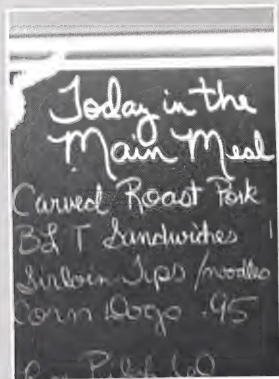 Today in the
Main Meal
Carved Roast Pork
BLT Sandwiches
Sirloin Tips / noodles
Corn Dogs .95